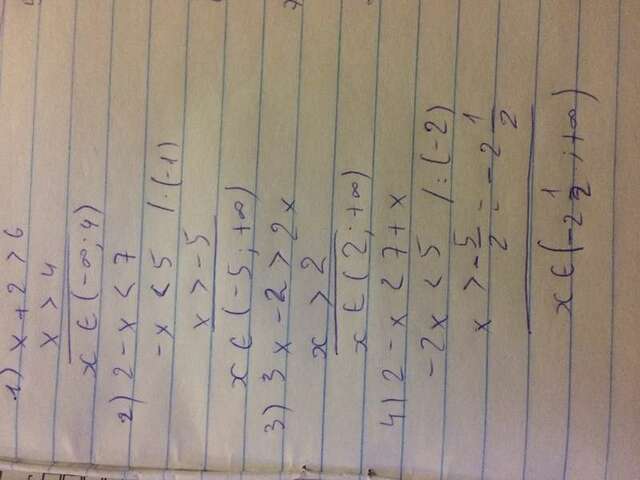 1) x + 2 > 6
x > 4
x ∈ (-∞; 4)
2) 2 - x < 7
-x < 5 / · (-1)
x > -5
x ∈ (-5; +∞)
3) 3x - 2 > 2x
x > 2
x ∈ (2; +∞)
4) 2 - x < 7 + x
-2x < 5 / : (-2)
x > -5/2 = -2 1/2
x ∈ (-2 1/2; +∞)